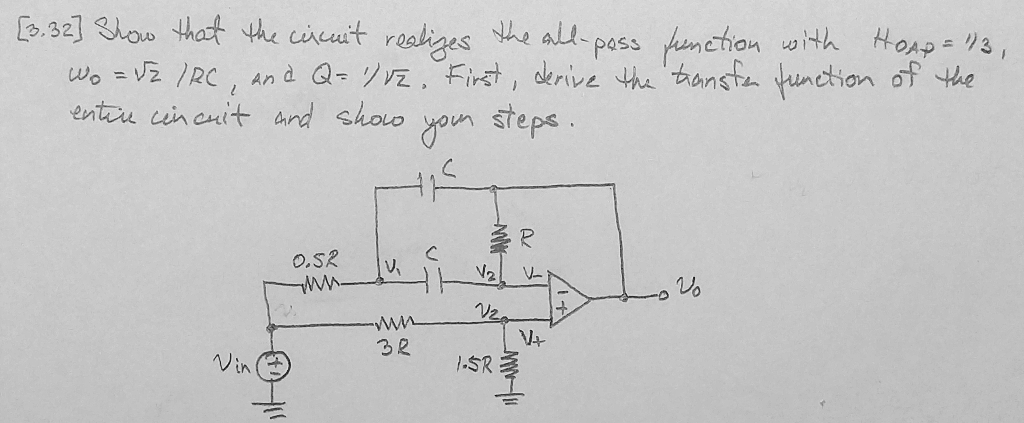 [3.32] Show that the circuit realizes the all-pass function with HOAP = 1/3,
ω0 = √2 /RC, and Q = 1/√2. First, derive the transfer function of the
entire circuit and show your steps.
C
R
0.5R V1 C V2 V-
- Vo
V2 +
3R V+
Vin + - 1.5R